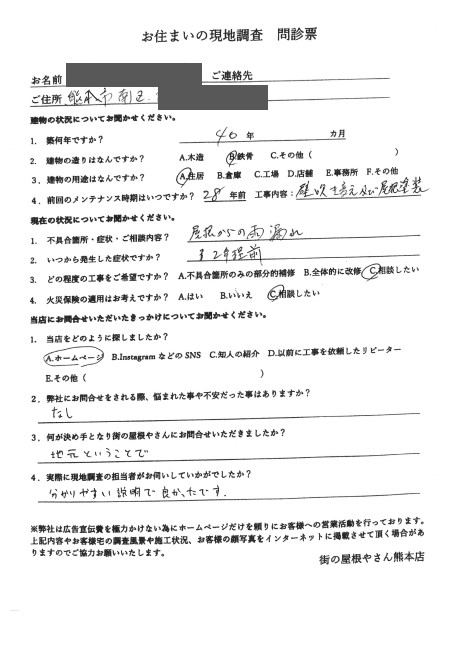 お住まいの現地調査 問診票
お名前 ご連絡先
ご住所 熊本市南区
建物の状況についてお聞かせください。
1. 築何年ですか? 40 年 カ月
2. 建物の造りはなんですか? A.木造 B.鉄骨 C.その他( )
3. 建物の用途はなんですか? A.住居 B.倉庫 C.工場 D.店舗 E.事務所 F.その他
4. 前回のメンテナンス時期はいつですか? 28 年前 工事内容: 壁吹き替え及び屋根塗装
現在の状況についてお聞かせください。
1. 不具合箇所・症状・ご相談内容? 屋根からの雨漏れ
2. いつから発生した症状ですか? 2年程前
3. どの程度の工事をご希望ですか? A.不具合箇所のみの部分的補修 B.全体的に改修 C.相談したい
4. 火災保険の適用はお考えですか? A.はい B.いいえ C.相談したい
当店にお問合せいただいたきっかけについてお聞かせください。
1. 当店をどのように探しましたか?
A.ホームページ B.Instagram などの SNS C.知人の紹介 D.以前に工事を依頼したリピーター
E.その他( )
2. 弊社にお問合せをされる際、悩まれた事や不安だった事はありますか?
なし
3. 何が決め手となり街の屋根やさんにお問合せいただきましたか?
地元ということで
4. 実際に現地調査の担当者がお伺いしていかがでしたか?
分かりやすい説明で良かったです.
※弊社は広告宣伝費を極力かけない為にホームページだけを頼りにお客様への営業活動を行っております。
上記内容やお客様宅の調査風景や施工状況、お客様の顔写真をインターネットに掲載させて頂く場合があ
りますのでご協力お願いいたします。
街の屋根やさん熊本店